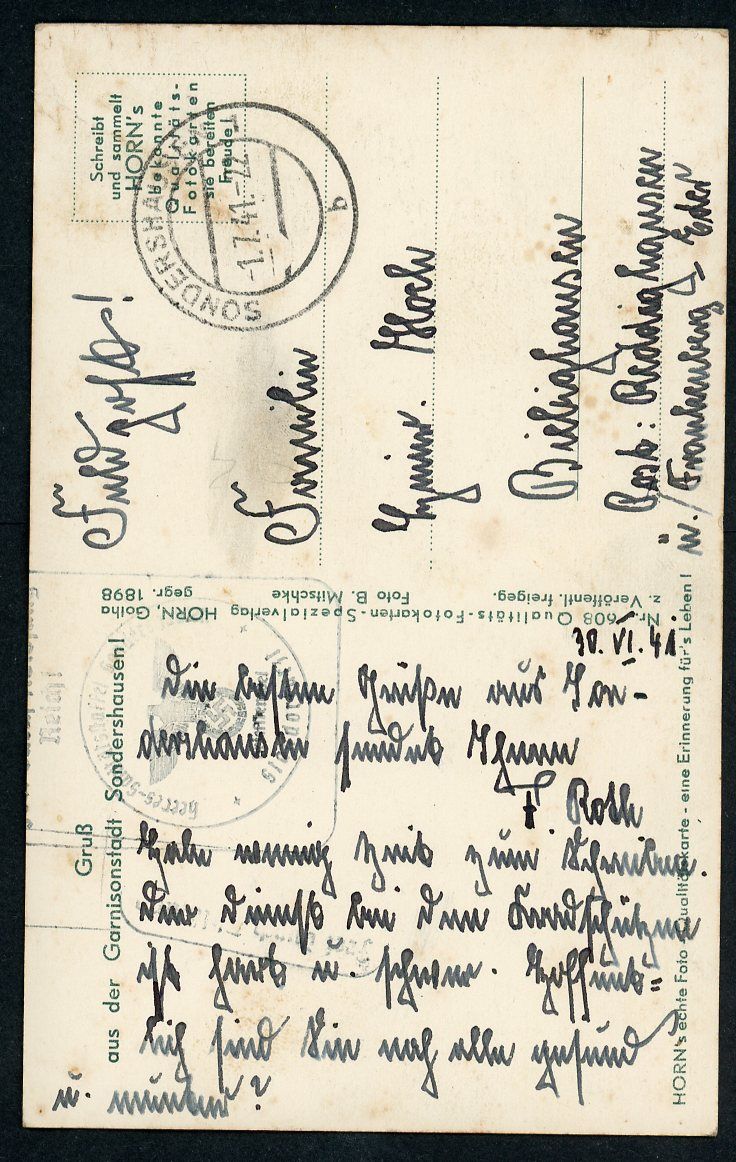 Gruß
aus der Garnisonstadt Sondershausen!
30. VI. 41
Die besten Grüße aus Son-
dershausen sendet Ihnen
Roth
Habe wenig Zeit zum Schreiben.
Der Dienst bei den Kradschützen
ist hart u. schwer. Hoffent=
lich sind Sie noch alle gesund
u. munter?
Nr. 608 Qualitäts-Fotokarten-Spezialverlag HORN, Gotha
z. Veröffentl. freigeg. Foto B. Mitschke gegr. 1898
HORN's echte Foto-Qualitätskarte - eine Erinnerung für's Leben!
Feldpost!
Familie
Heinr. Koch
Biebighausen
Post: Reddighausen
ü./Frankenberg Eder
Schreibt
und sammelt
HORN's
bekannte
Qualitäts-
Fotokarten
sie bereiten
Freude!
SONDERSHAUSEN
1.7.41.
b